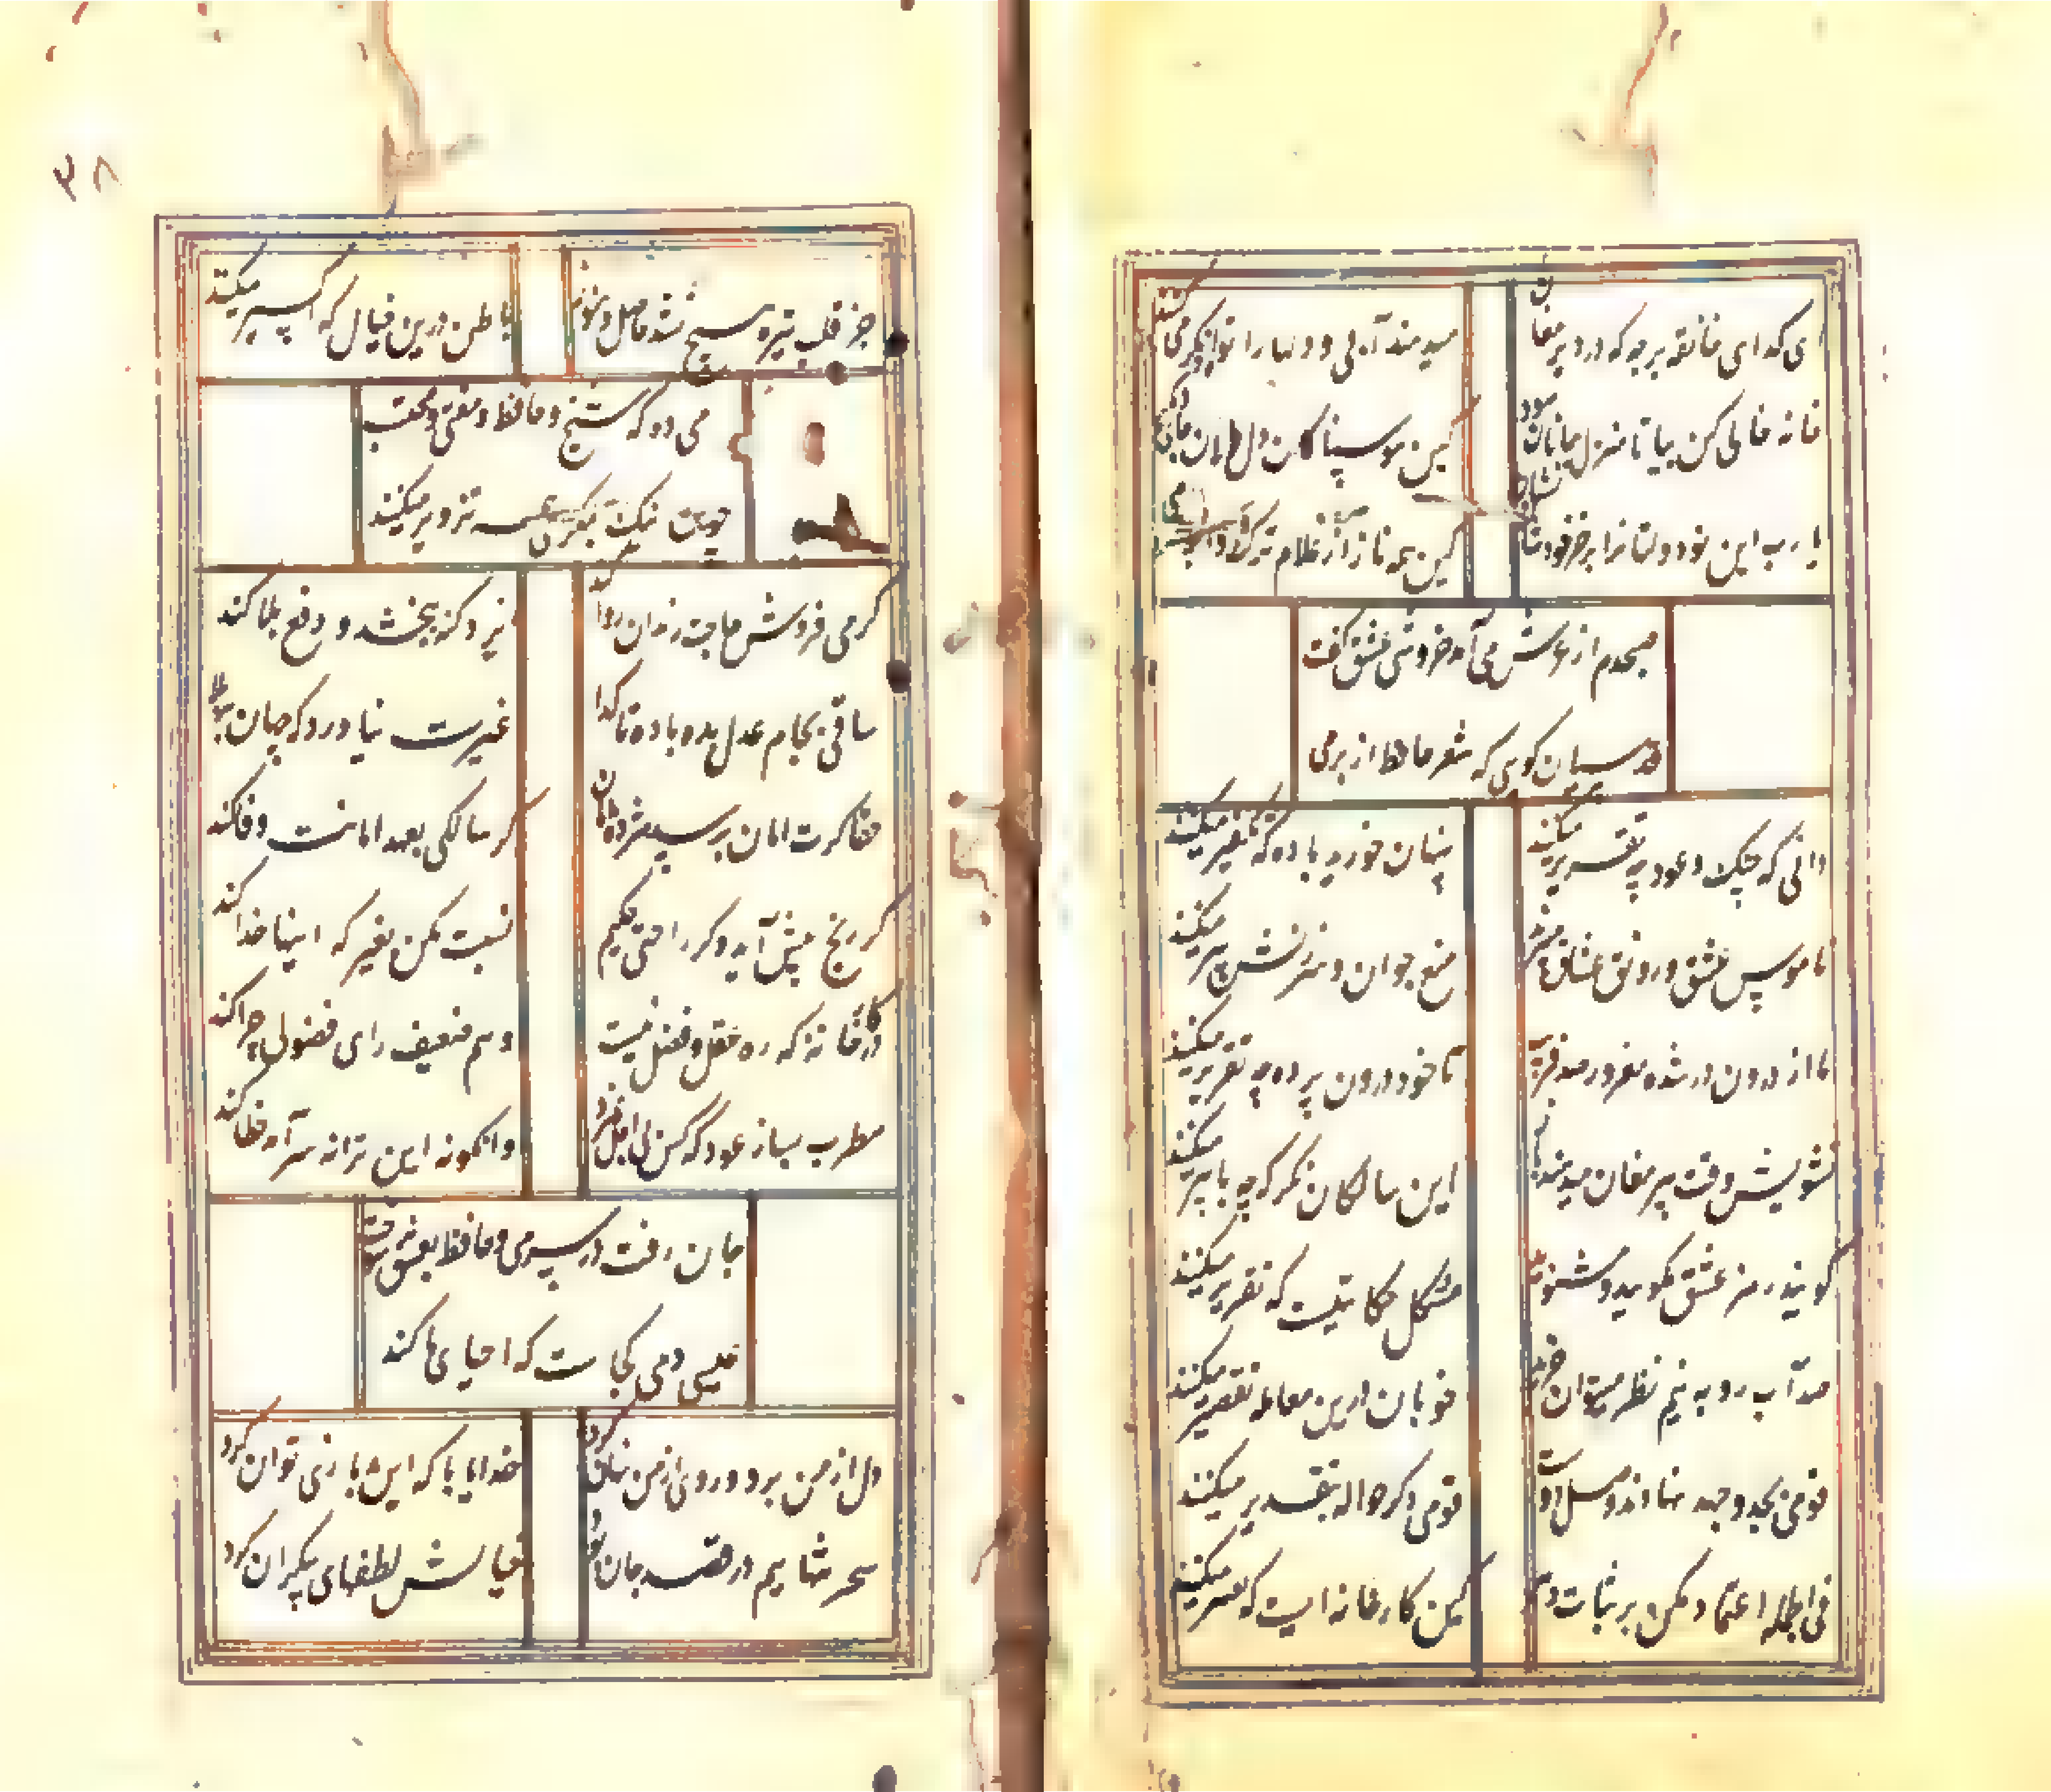 ای کدای خانقه برجه که در دیر مغان
میدهند آبی و دلها را توانگر می کنند
خانه خالی کن بیا تا منزل جانان شود
کین هوسناکان دل
یا رب این نودولتانرا بر خر خودشان نشان
کین همه ناز از غلام ترک و استر می کنند
صبحدم از عرش می آمد خروشی عشق گفت
قدسیان گوی که شعر حافظ از بر می
دانی که چنک و عود چه تقریر میکنند
پنهان خورید باده که تعزیر میکنند
ناموس عشق و رونق عشاق
منع جوان و سرزنش پیر میکنند
ما از درون در شده مغرور صد فریب
تا خود درون پرده چه تقریر میکنند
تشویش وقت پیر مغان میدهند باز
این سالکان نکر که چه با پیر میکنند
گویند رمز عشق مگویید و مشنوید
مشکل حکایتیست که تقریر میکنند
صد آب رو به نیم نظر میتوان خرید
خوبان درین معامله تقصیر میکنند
قومی بجد و جهد نهادند وصل دوست
قومی دکر حواله بتقدیر میکنند
فی الجمله اعتماد مکن بر ثبات دهر
کین کارخانه ایست که تغییر میکنند
۳۸
جز قلب تیره هیچ نشد حاصل و هنوز
باطن درین خیال که اکسیر میکنند
می ده که شیخ و حافظ و مفتی و محتسب
چون نیک بنگری همه تزویر میکنند
کر می فروش حاجت رندان روا کند
ایزد کنه بخشد و دفع بلا کند
ساقی بجام عدل بده باده تا کدا
غیرت نیاورد که جهان پر بلا
حقا کزت امان برسد مژده امان
کر سالکی بعهد امانت وفا کند
کر رنج پیش آید و کر راحتی حکیم
نسبت مکن بغیر که اینها خدا کند
در کارخانه که ره عقل و فضل نیست
وهم ضعیف رای فضولی چرا کند
مطرب بساز عود که کس بی اجل نمرد
وانکو نه این ترانه سرآید خطا کند
جان رفت در سر می و حافظ بعشق سوخت
عیسی دمی کجاست که احیای ما کند
دل از من برد و روی از من نهان کرد
خدا را با که این بازی توان کرد
سحر تنهاییم در قصد جان بود
خیالش لطفهای بیکران کرد